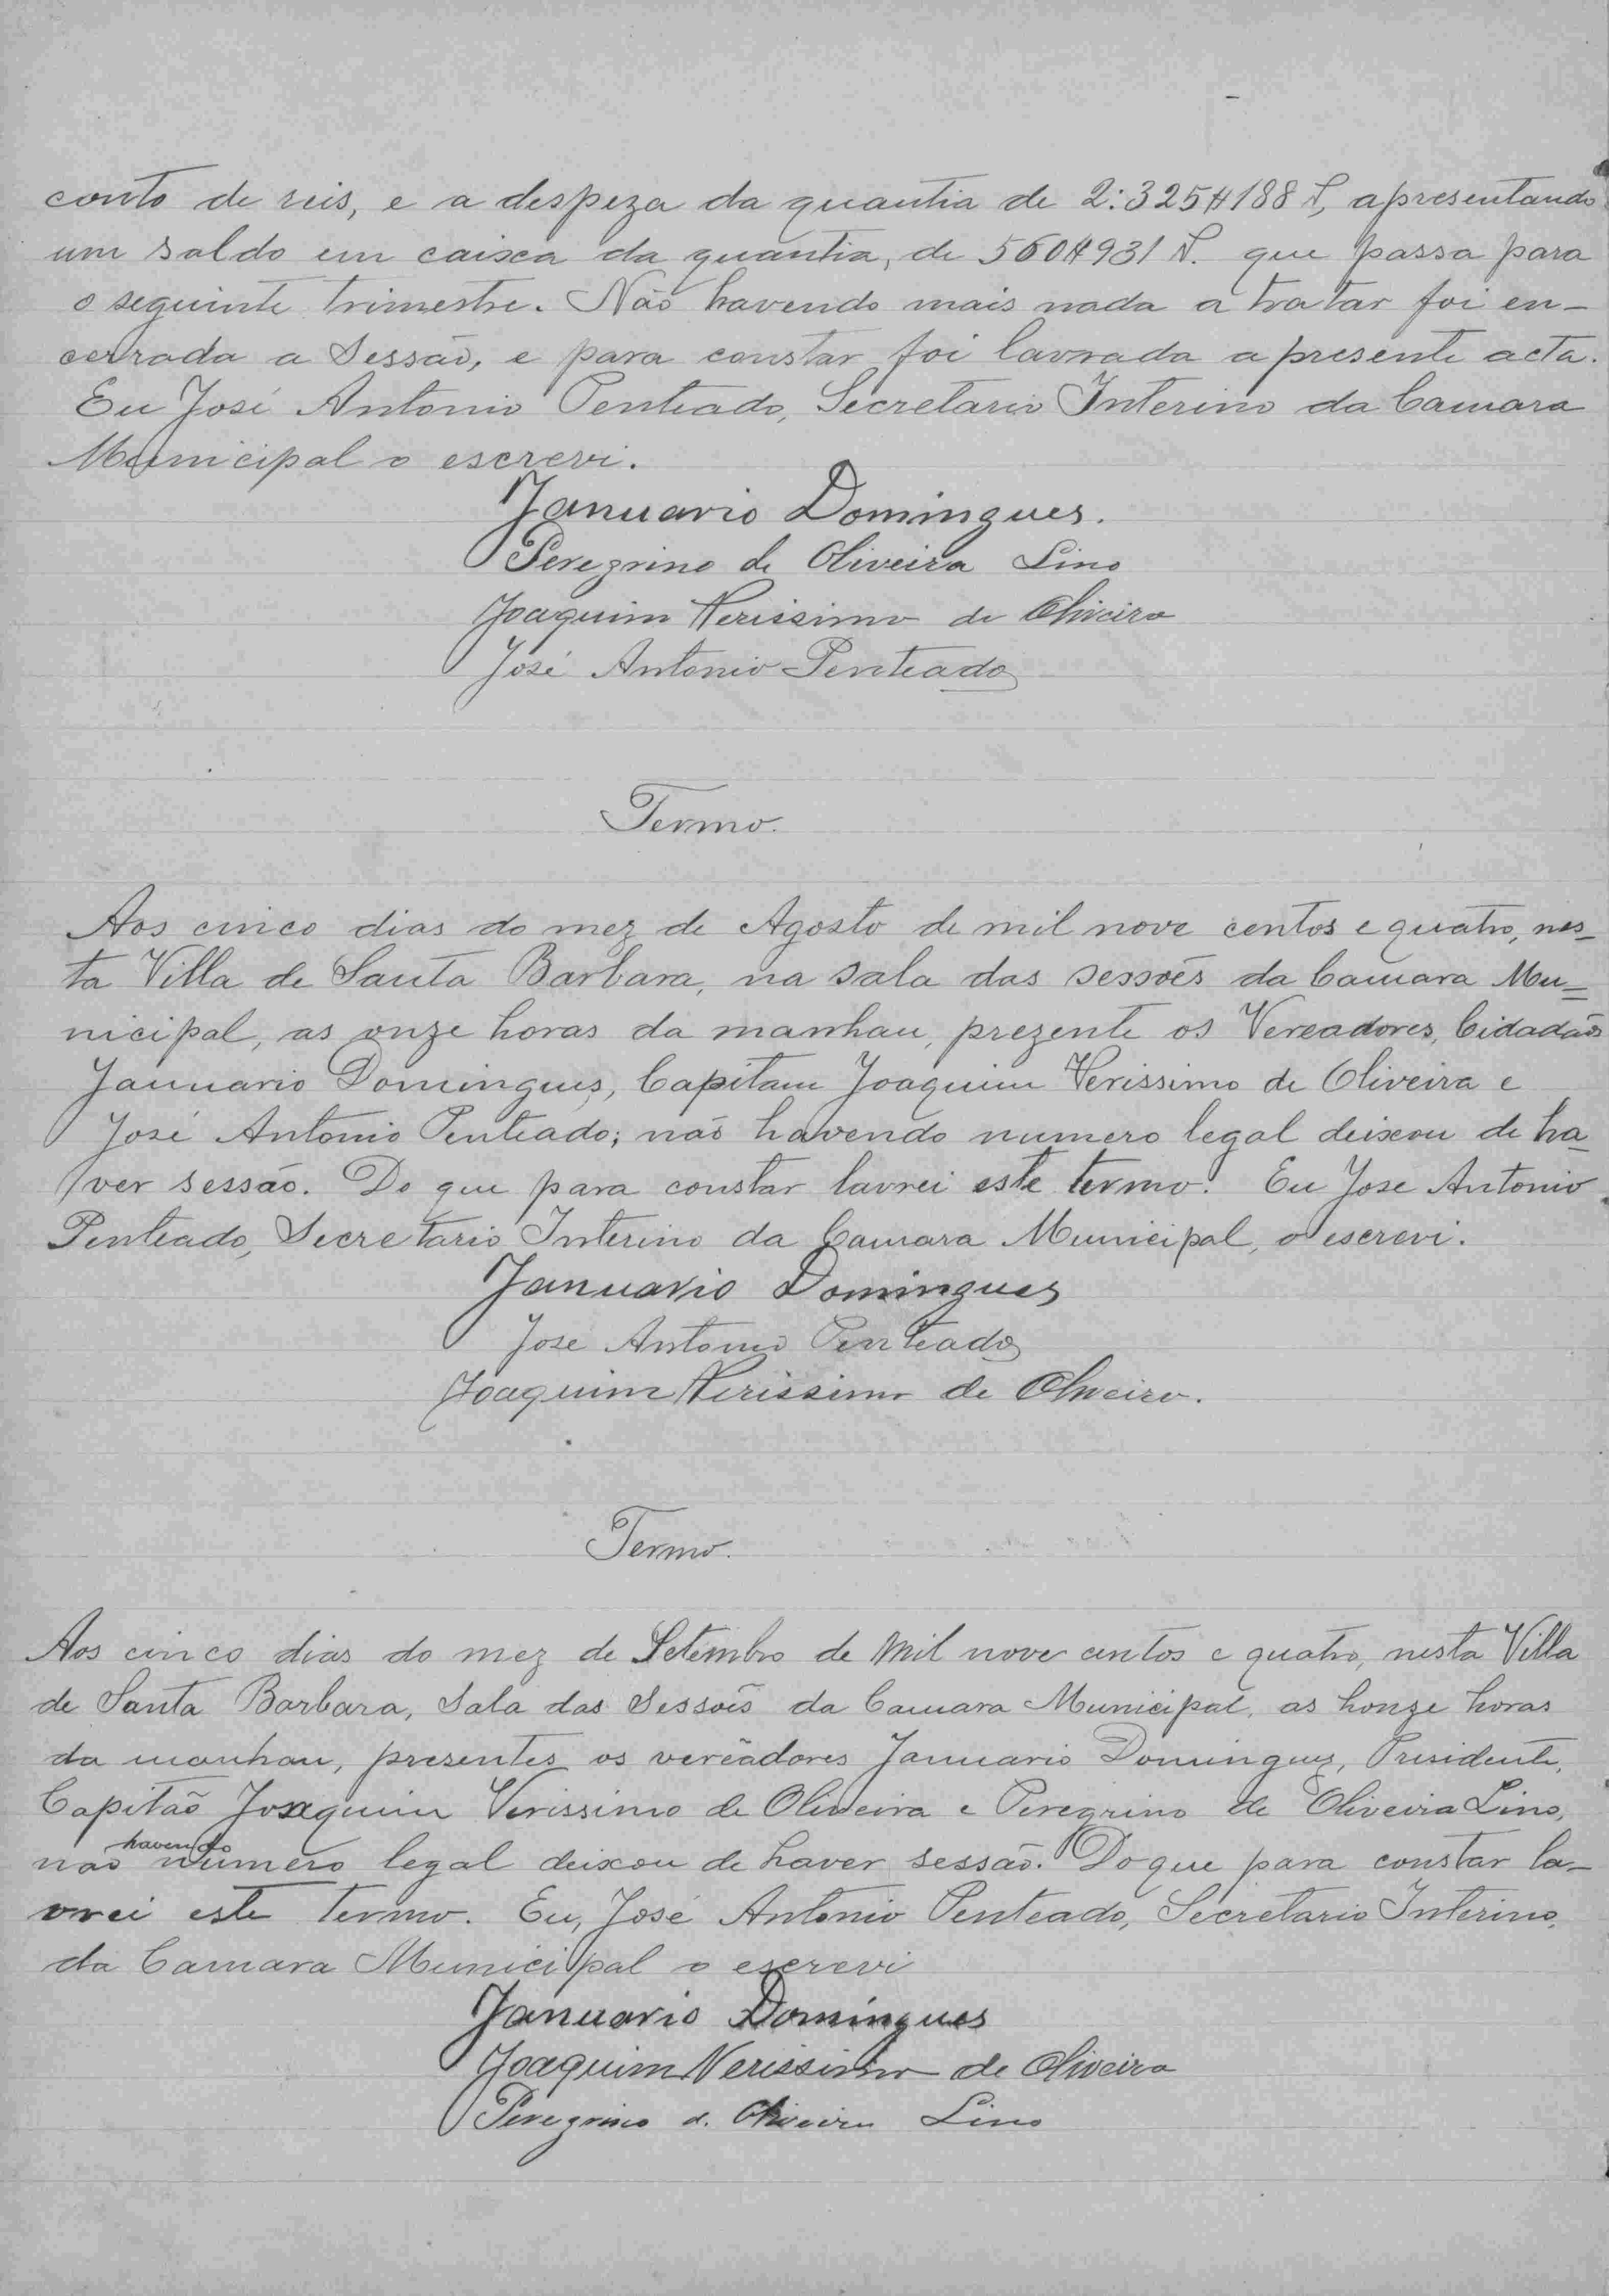 conto de reis, e a despeza da quantia de 2:325$188 rs, apresentando
um saldo em caisca da quantia, de 560$931 rs. que passa para
o seguinte trimestre. Não havendo mais nada a tratar foi en-
cerrada a Sessão, e para constar foi lavrada a presente acta.
Eu José Antonio Penteado, Secretario Interino da Camara
Municipal o escrevi.
Januario Domingues.
Peregrino de Oliveira Lino
Joaquim Verissimo de Oliveira
José Antonio Penteado
Termo.
Aos cinco dias do mez de Agosto de mil nove centos e quatro, nes-
ta Villa de Santa Barbara, na sala das sessões da Camara Mu=
nicipal, as onze horas da manhau, prezente os Vereadores, Cidadãos
Januario Domingues, Capitam Joaquim Verissimo de Oliveira e
José Antonio Penteado; não havendo numero legal deixou de ha-
ver sessão. Do que para constar lavrei este termo. Eu Jose Antonio
Penteado, Secretario Interino da Camara Municipal, o escrevi.
Januario Domingues
Jose Antonio Penteado
Joaquim Verissimo de Oliveira.
Termo.
Aos cinco dias do mez de Setembro de mil nove centos e quatro, nesta Villa
de Santa Barbara, Sala das Sessões da Camara Municipal, as honze horas
da manhau, presentes os vereadores Januario Domingues, Presidente,
Capitão Joaquim Verissimo de Oliveira e Peregrino de Oliveira Lino,
não havendo numero legal deixou de haver sessão. Do que para constar la-
vrei este termo. Eu, José Antonio Penteado, Secretario Interino,
da Camara Municipal o escrevi
Januario Domingues
Joaquim Verissimo de Oliveira
Peregrino d. Oliveira Lino